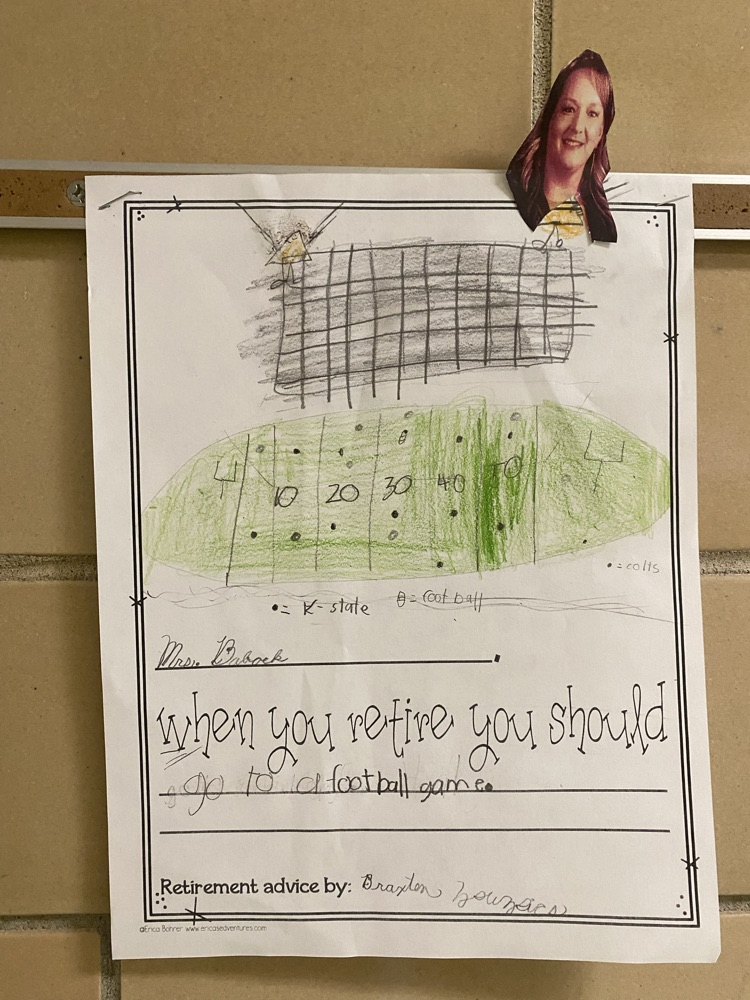 10 20 30 40
•=colts
•= K-state θ= football
Mrs. Babcock.
when you retire you should
go to a football game.
Retirement advice by: Braxton
©Erica Bohrer www.ericasedventures.com